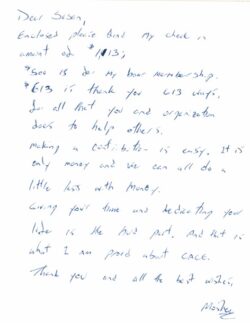 Dear Susan,
Enclosed please find my check in
amount of $1113;
$500 is for my base membership.
$613 is thank you 613 ways.
for all that you and organization
does to help others.
making a contribution is easy. It is
only money and we can all do a
little less with money.
Giving your time and dedicating your
life is the hard part. And that is
what I am proud about
Thank you and all the best wishes,